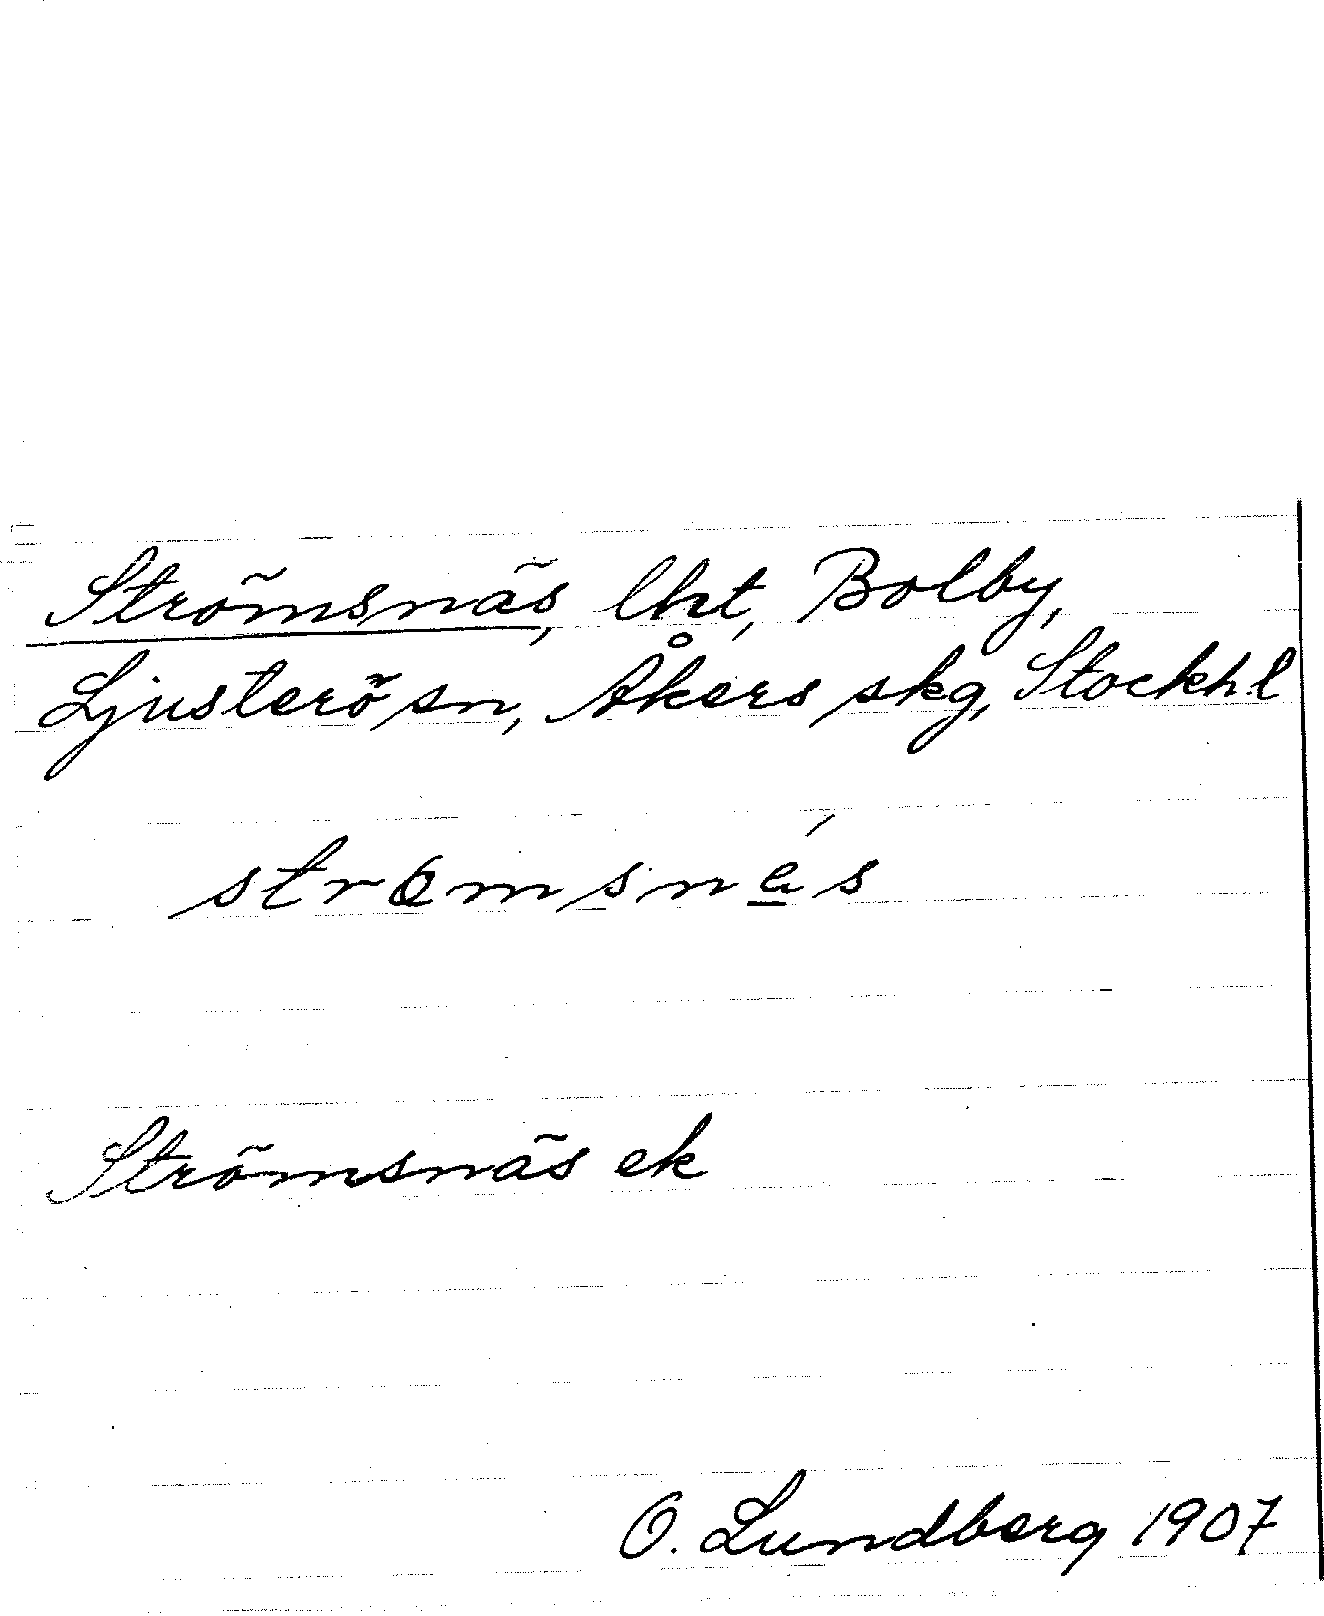 Strömsnäs, lht, Bolby,
Ljusterö sn, Åkers skg, Stockh l
Strömsnäs ek
O. Lundberg 1907